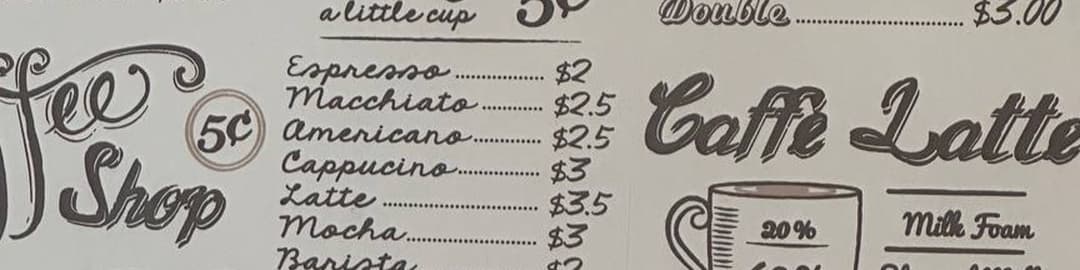 a little cup 5¢
Double $3.00
Espresso $2
Macchiato $2.5
Americano $2.5
Cappucino $3
Latte $3.5
Mocha $3
Barista
Shop
5¢
Caffè Latte
20%
Milk Foam